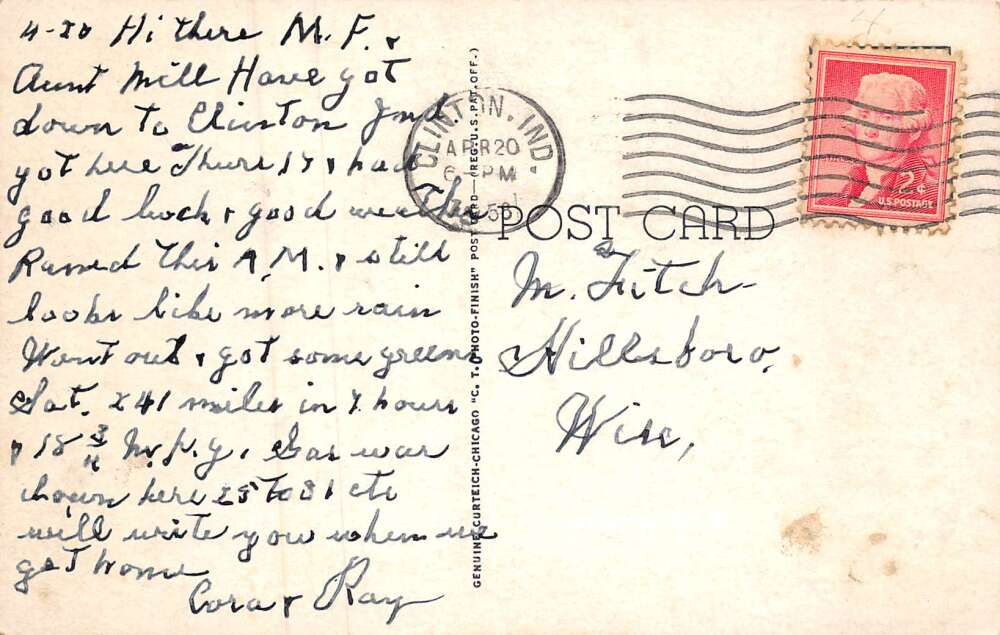 4-20 Hi there M. F. &
Aunt Mill Have got
down to Clinton Ind
got here Thurs & had
good luck & good weather
Rained this A.M. & still
looks like more rain
Went out & got some greens
Sat. 241 miles in 7 hours
& 18 3/4 M.p.g. Gas was
down here 25 to 31 cts
will write you when we
get home
Cora & Ray
CLINTON, IND
APR 20
6 PM
POST CARD
M. Fitch
Hillsboro,
Wisc,
2¢
U.S. POSTAGE
GENUINE CURTEICH-CHICAGO "C. T. PHOTO-FINISH" POST CARD—(REG. U.S. PAT. OFF.)